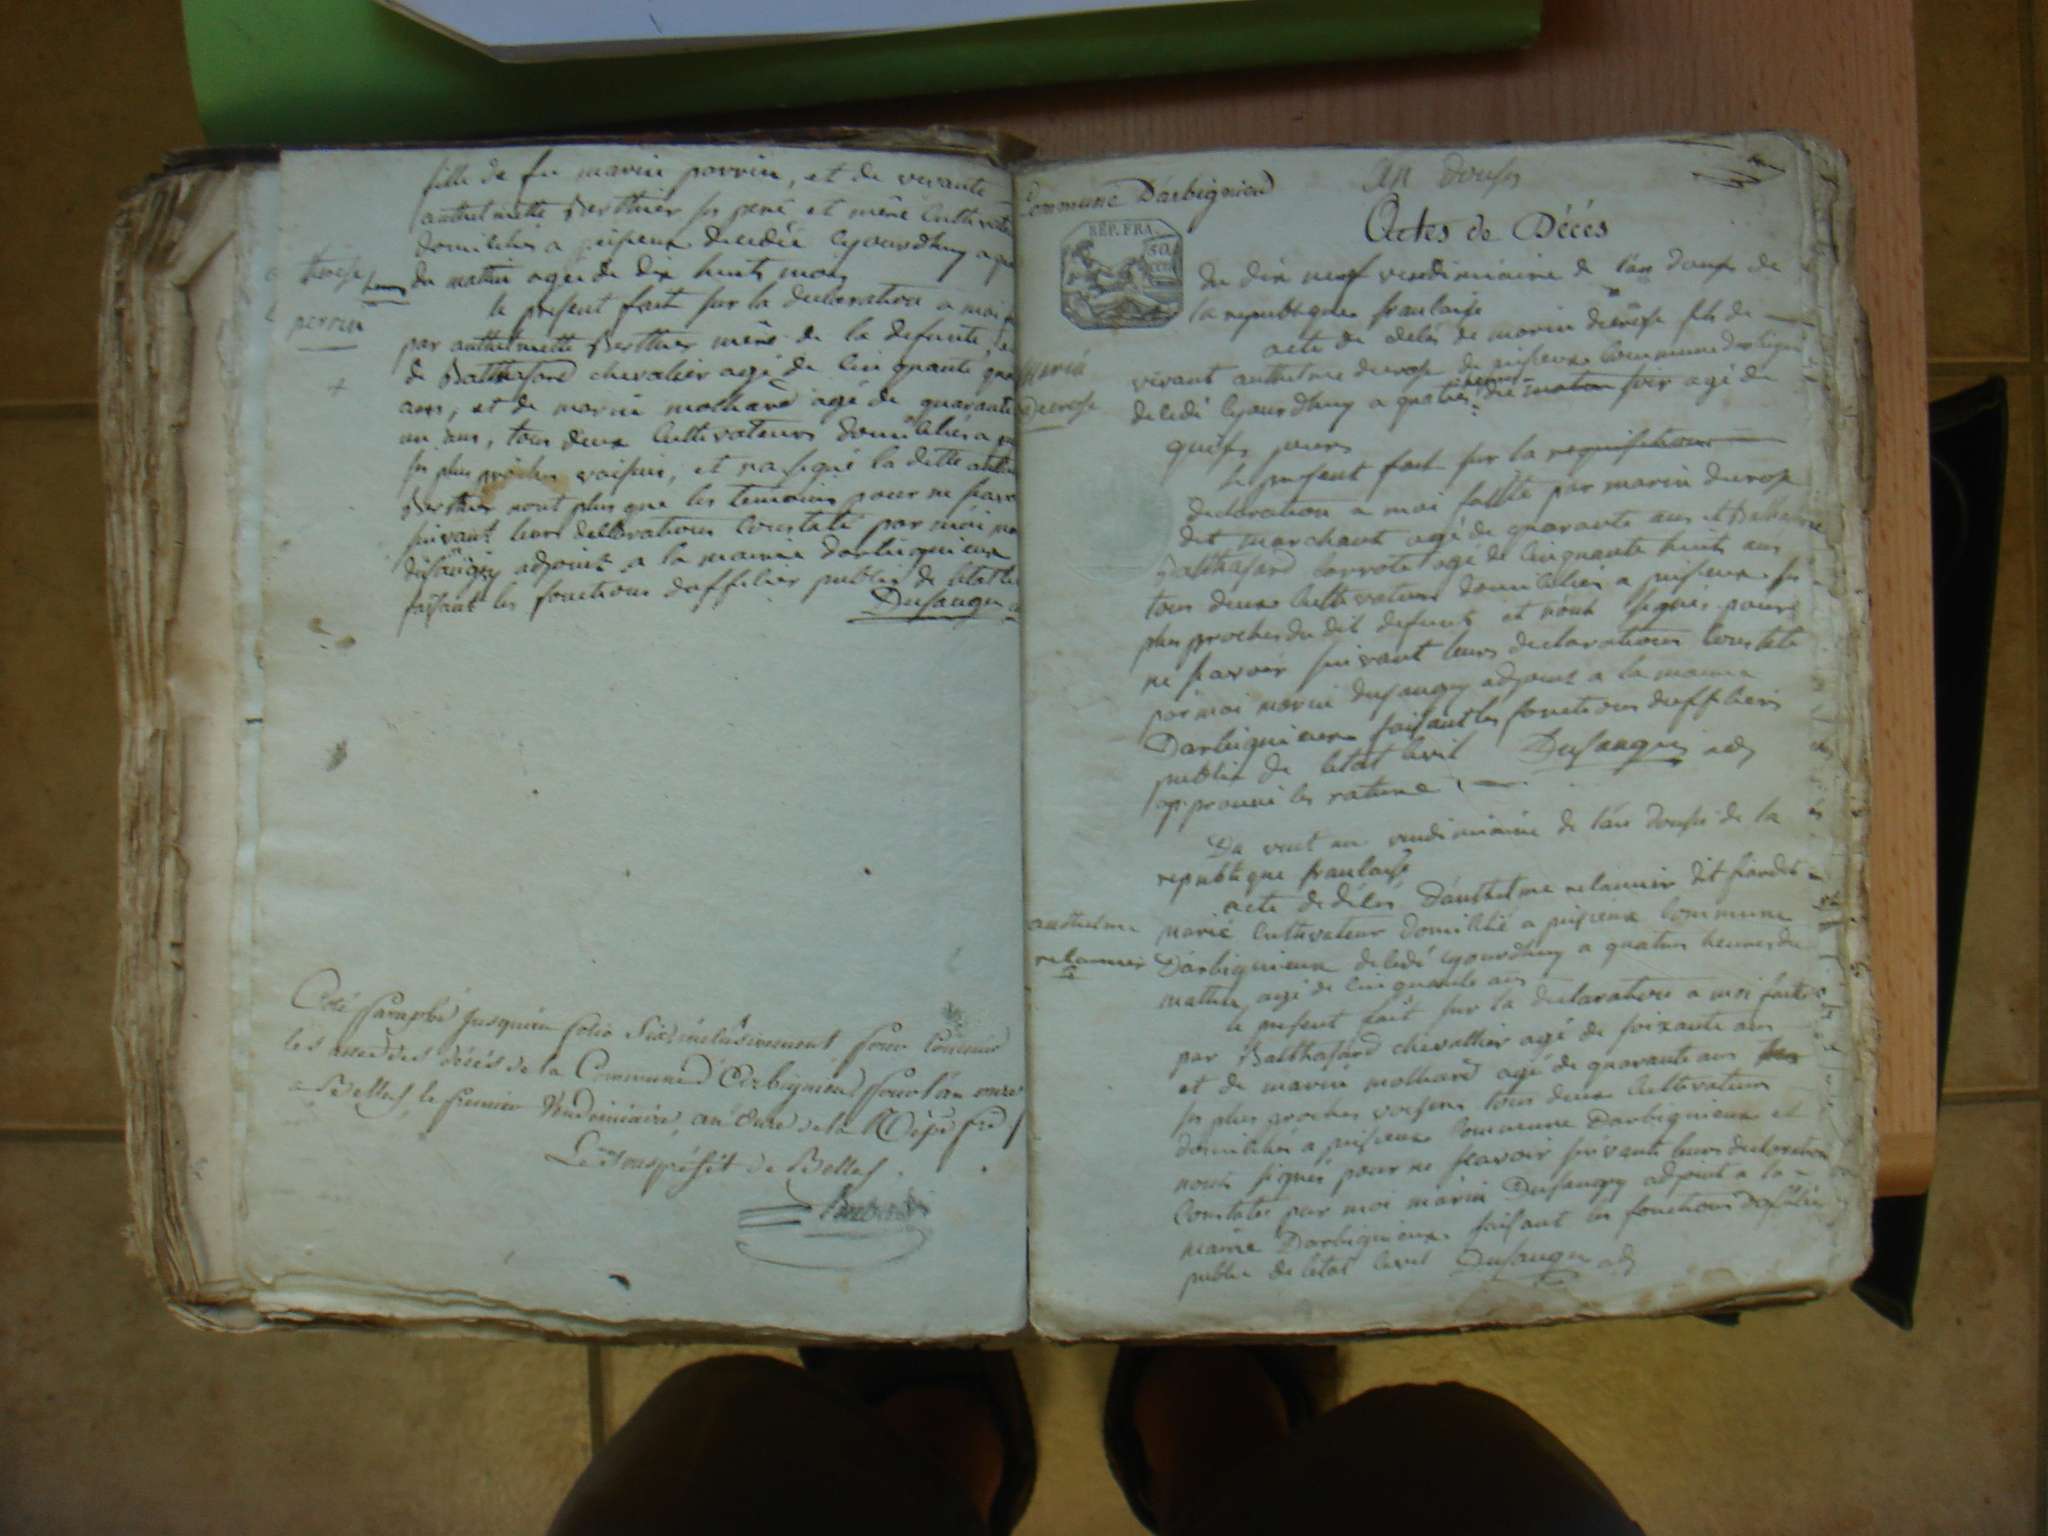 fille de feu marin perrin, et de vivante
anthelmette Berthier ses peré, et mère Cultivat
domiciliés a puisieux decedée cejourdhuy a
du mattin agée de dix huits mois
therese
perrin
le present fait sur la declaration a moi
par anthelmette Berthier mère de la defunte,
de Balthasard chevalier agé de cinquante
ans, et de marin molliard agé de quarante
un ans, tous deux Cultivateurs domiciliés a
ses plus proches voisins, et na signé la ditte
Berthier nont plus que les temoins pour ne scav
suivant leurs declarations Constaté par moi
dusaugey adjoint a la mairie darbignieux
faisant les fonctions dofficier public de letat
Dusaugey
Coté & paraphé jusquau folio Six inclusivement pour contenir
les actes des décés de la Commune d'Arbignieu pour l'an onze
a Belley, le premier Vendemiaire, an onze de la Rép. fre
Le souspréfét de Belley.
Commune D'arbignieu
an douse
Actes de Décés
RÉP. FRA.
50
du dix neuf vendimiaire de l'an douse de
la republique francaise
acte de decés de marin decrose fils de
vivant anthelme decrose de puisieux Commune darbign
decedé cejourdhuy a quatre heures du matin soir agé de
marin
Decrose
quinse jours
le present fait sur la requisitions
declaration a moi faitte par marin decrose
dit marchant agé de quarante ans et Balthasard
Balthasard agé de cinquante huits ans
tous deux Cultivateurs domiciliés a puisieux ses
plus proches du dit defunt et nont signés pour
ne scavoir suivant leurs declarations Constaté
par moi marin dusaugey adjoint a la mairie
Darbignieux faisant les fonctions dofficiers
public de letat Civil Dusaugey adj
approuvé les rature
Du vint un vendimiaire de l'an douse de la
republique francaise
acte de décés d'anthelme relannier dit
marié Cultivateur domicilié a puisieux Commune
anthelme
relannier
Darbignieux decedé cejourdhuy a quatres heures du
mattin, agé de cinquante ans
le present fait sur la declaration a moi faite
par Balthasard chevallier agé de soixante ans
et de marin molliard agé de quarante ans
ses plus proches voisins tous deux Cultivateurs
domiciliés a puisieux Commune Darbignieux et
nont signés pour ne scavoir suivant leurs declaration
Constatée par moi marin Dusaugey adjoint a la
mairie Darbignieux faisant les fonctions dofficier
public de letat Civil Dusaugey adj